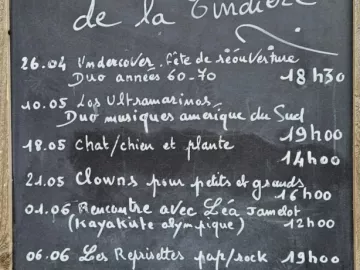 de la Tindière
26.04 Undercover. Fête de réouverture
Duo années 60-70 18h30
10.05 Los Ultramarinos,
Duo musiques amérique du Sud
19h00
18.05 chat/chien et plante
14h00
21.05 Clowns pour petits et grands
16h00
01.06 Rencontre avec Léa Jamelot
(Kayakiste olympique) 12h00
06.06 Les Reprisettes pop/rock 19h00